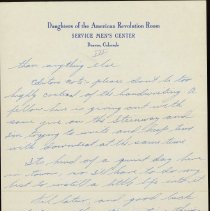 Daughters of the American Revolution Room
SERVICE MEN'S CENTER
Denver, Colorado
III
than anything else
Editors note - please don't be too
highly critical of the handwriting. A
fellow here is giving out with
some jive on the Steinway and
I'm trying to write and keep time
with downbeat at the same time
It's kind of a quiet day here
in town, so I'll have to do my
best to instill a little life into it
Till later, and good luck